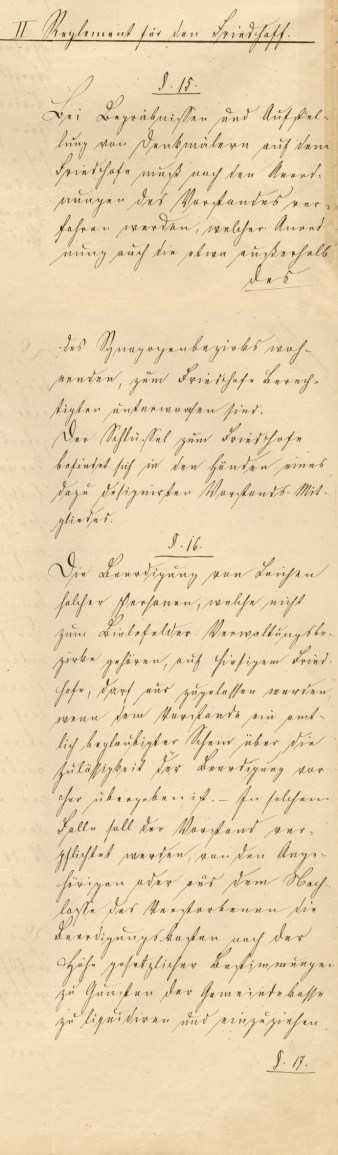 II Reglement für den Friedhoff.
§. 15.
Bei Begräbnissen und Aufstel-
lung von Denkmälern auf dem
Friedhofe muß nach den Anord-
nungen des Vorstandes ver-
fahren werden, welcher Anord
nung auch die etwa außerhalb
des
des Synagogenbezirks woh-
nenden, zum Friedhofe Berech-
tigten unterworfen sind.
Der Schlüssel zum Friedhofe
befindet sich in den Händen eines
dazu designirten Vorstands-Mit-
gliedes.
§. 16.
Die Beerdigung von Leichen
solcher Personen, welche nicht
zum Bielefelder Verwaltungsbe-
zirke gehören, auf hiesigem Fried-
hofe, darf nur zugelassen werden,
wenn dem Vorstande ein amt-
lich beglaubigter Schein über die
Zulässigkeit der Beerdigung vor-
her übergeben ist. – In solchem
Falle soll der Vorstand ver-
pflichtet werden, von den Ange-
hörigen oder aus dem Nach-
lasse des Verstorbenen die
Beerdigungskosten nach der
Höhe gesetzlicher Bestimmungen
zu Gunsten der Gemeindekasse
zu liquidiren und einzuziehen.
§. 17.